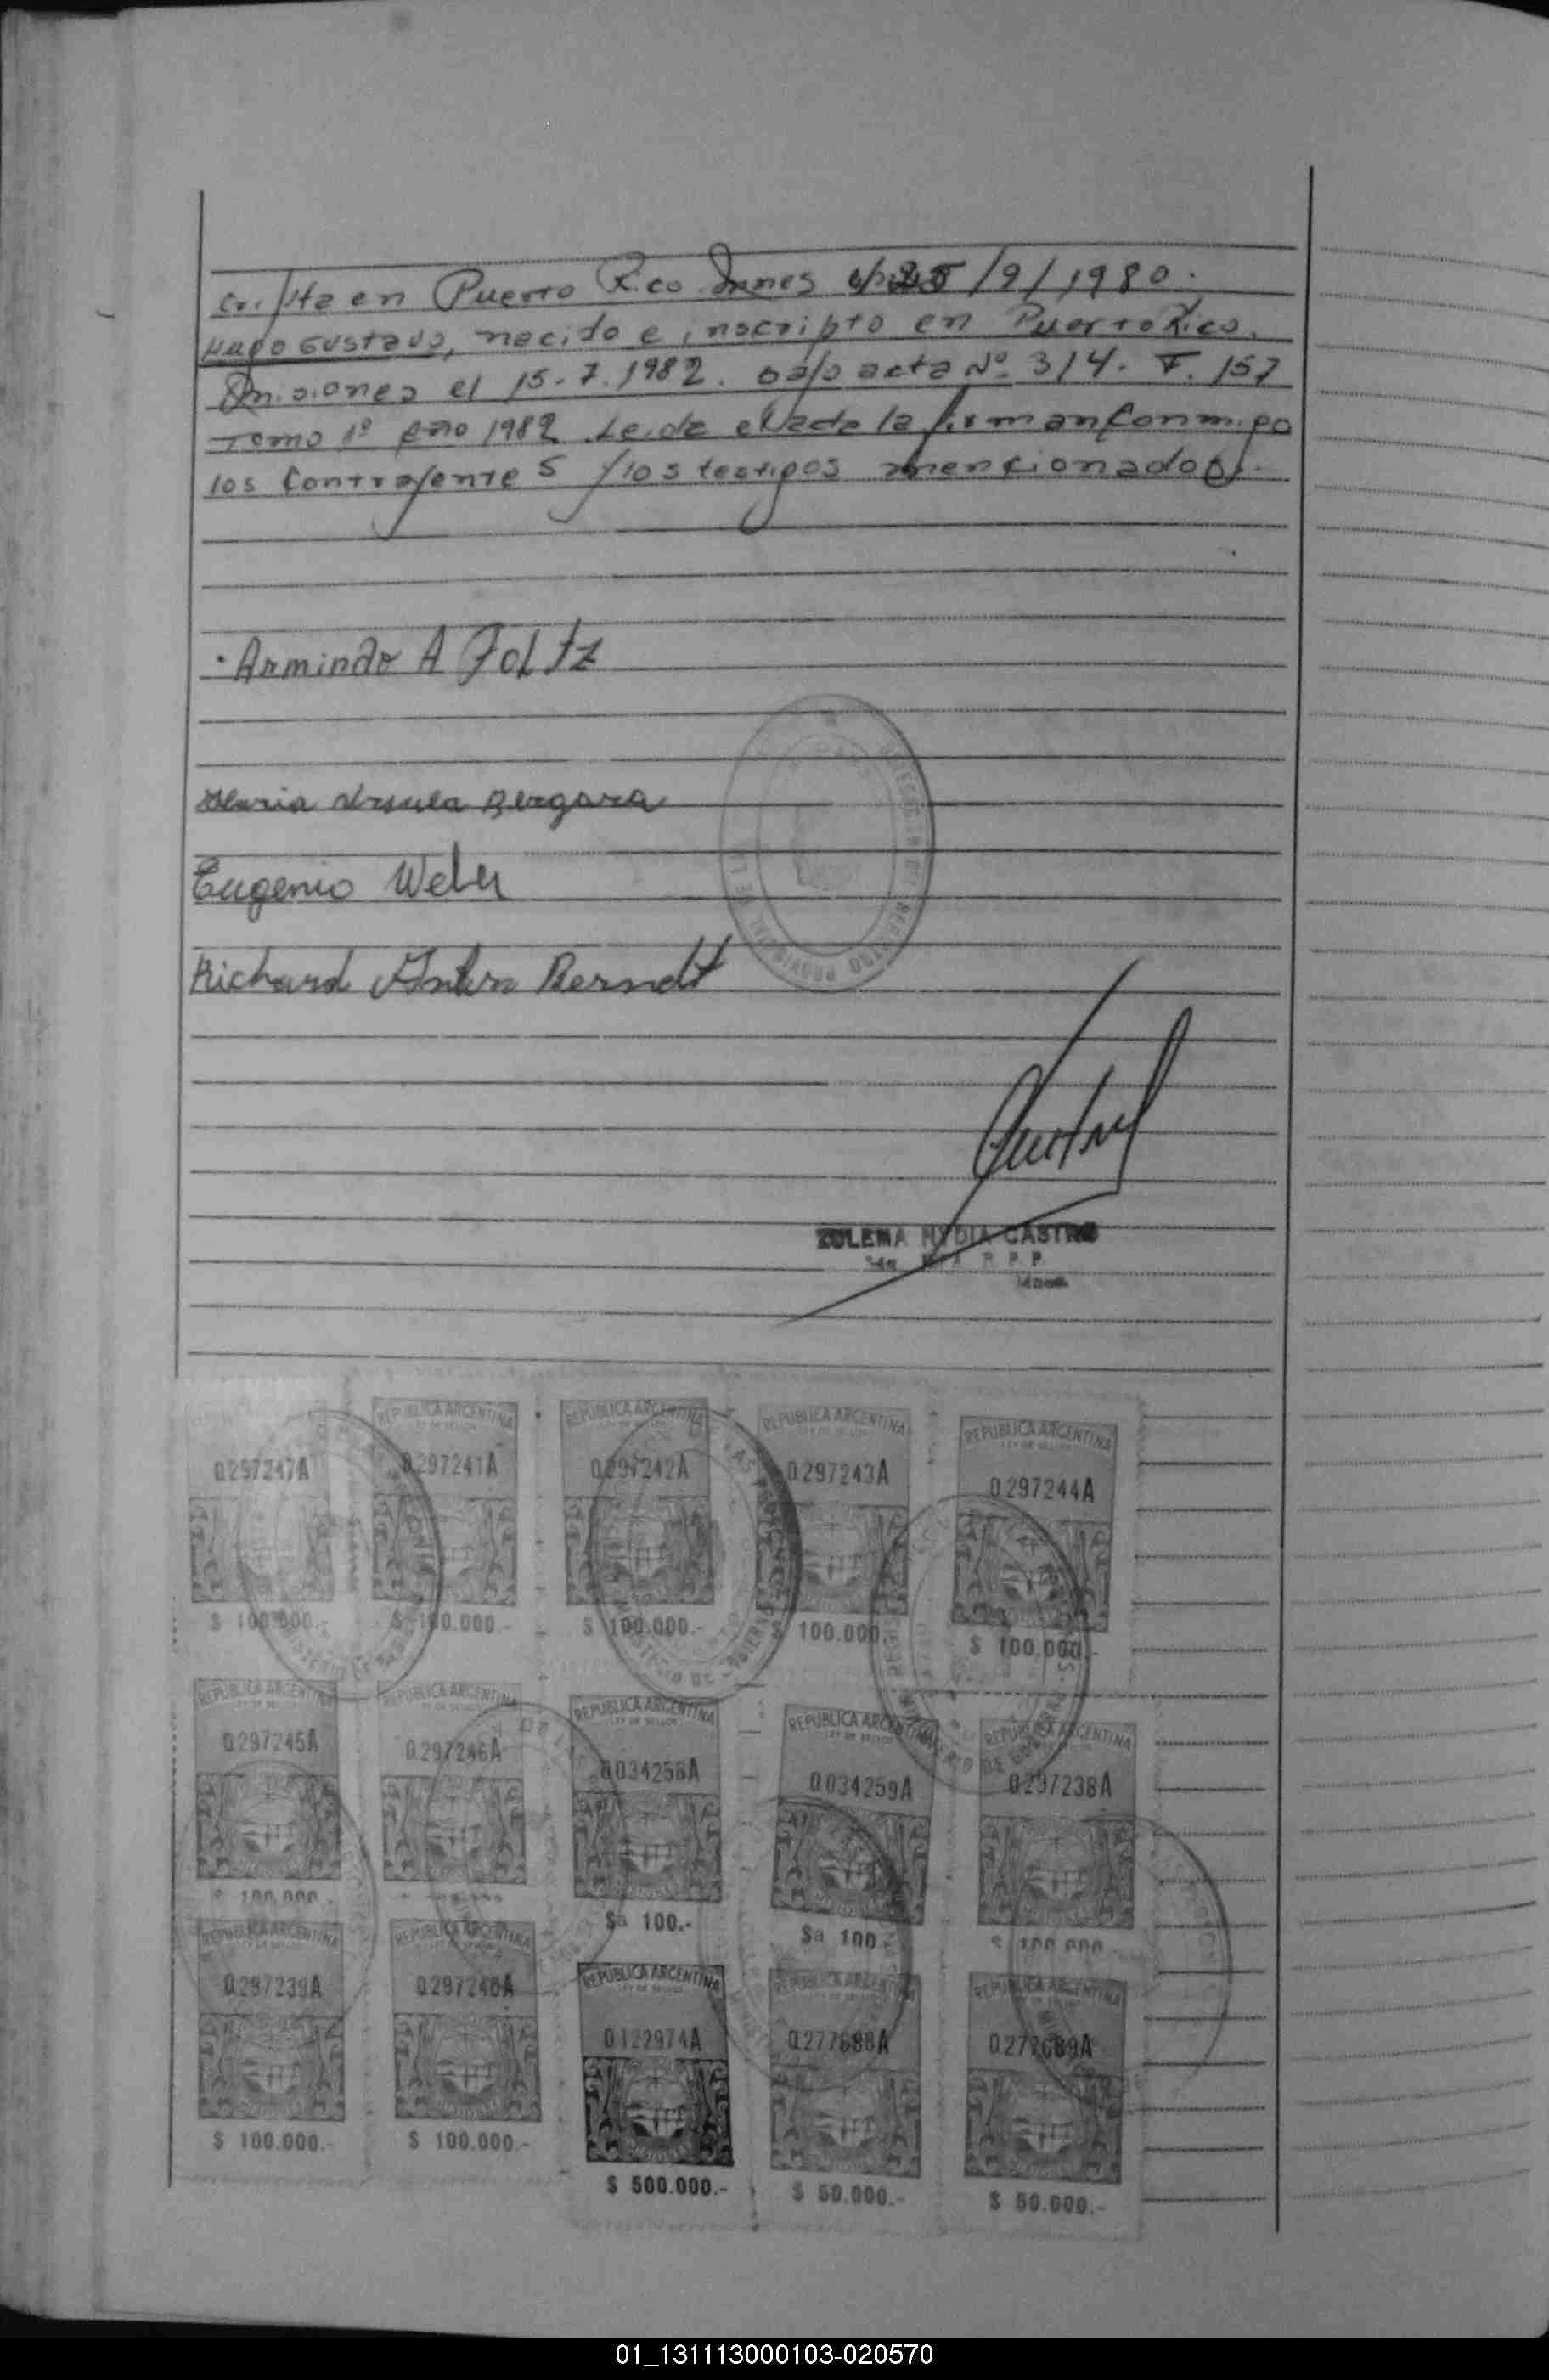 cripta en Puerto Rico Mnes el 25/9/1980.
Hugo Gustavo, nacido e inscripto en Puerto Rico.
Misiones el 15-7-1982. bajo acta Nº 314. F. 157
Tomo 1º año 1982. Leida el acta la firman conmigo
los Contrayentes y los testigos mencionados.
Armindo A Foltz
Maria Ursula Bergara
Eugenio Weber
Richard Berndt
ZULEMA NYDIA CASTRO
R. P. P.
REPUBLICA ARGENTINA REPUBLICA ARGENTINA REPUBLICA ARGENTINA REPUBLICA ARGENTINA
LEY DE SELLOS
0297247A 0297241A 0297242A 0297243A 0297244A
$ 100.000.- $ 100.000.- $ 100.000.- $ 100.000. $ 100.000.-
REPUBLICA ARGENTINA REPUBLICA ARGENTINA REPUBLICA ARGENTINA REPUBLICA ARGENTINA REPUBLICA ARGENTINA
0297245A 0297246A 0034258A 0034259A 0297238A
$ 100.000.- $a 100.- $a 100.- $ 100.000.-
REPUBLICA ARGENTINA REPUBLICA ARGENTINA REPUBLICA ARGENTINA REPUBLICA ARGENTINA REPUBLICA ARGENTINA
0297239A 0297240A 0122974A 0277688A 0277689A
$ 100.000.- $ 100.000.- $ 500.000.- $ 50.000.- $ 50.000.-
01_131113000103-020570